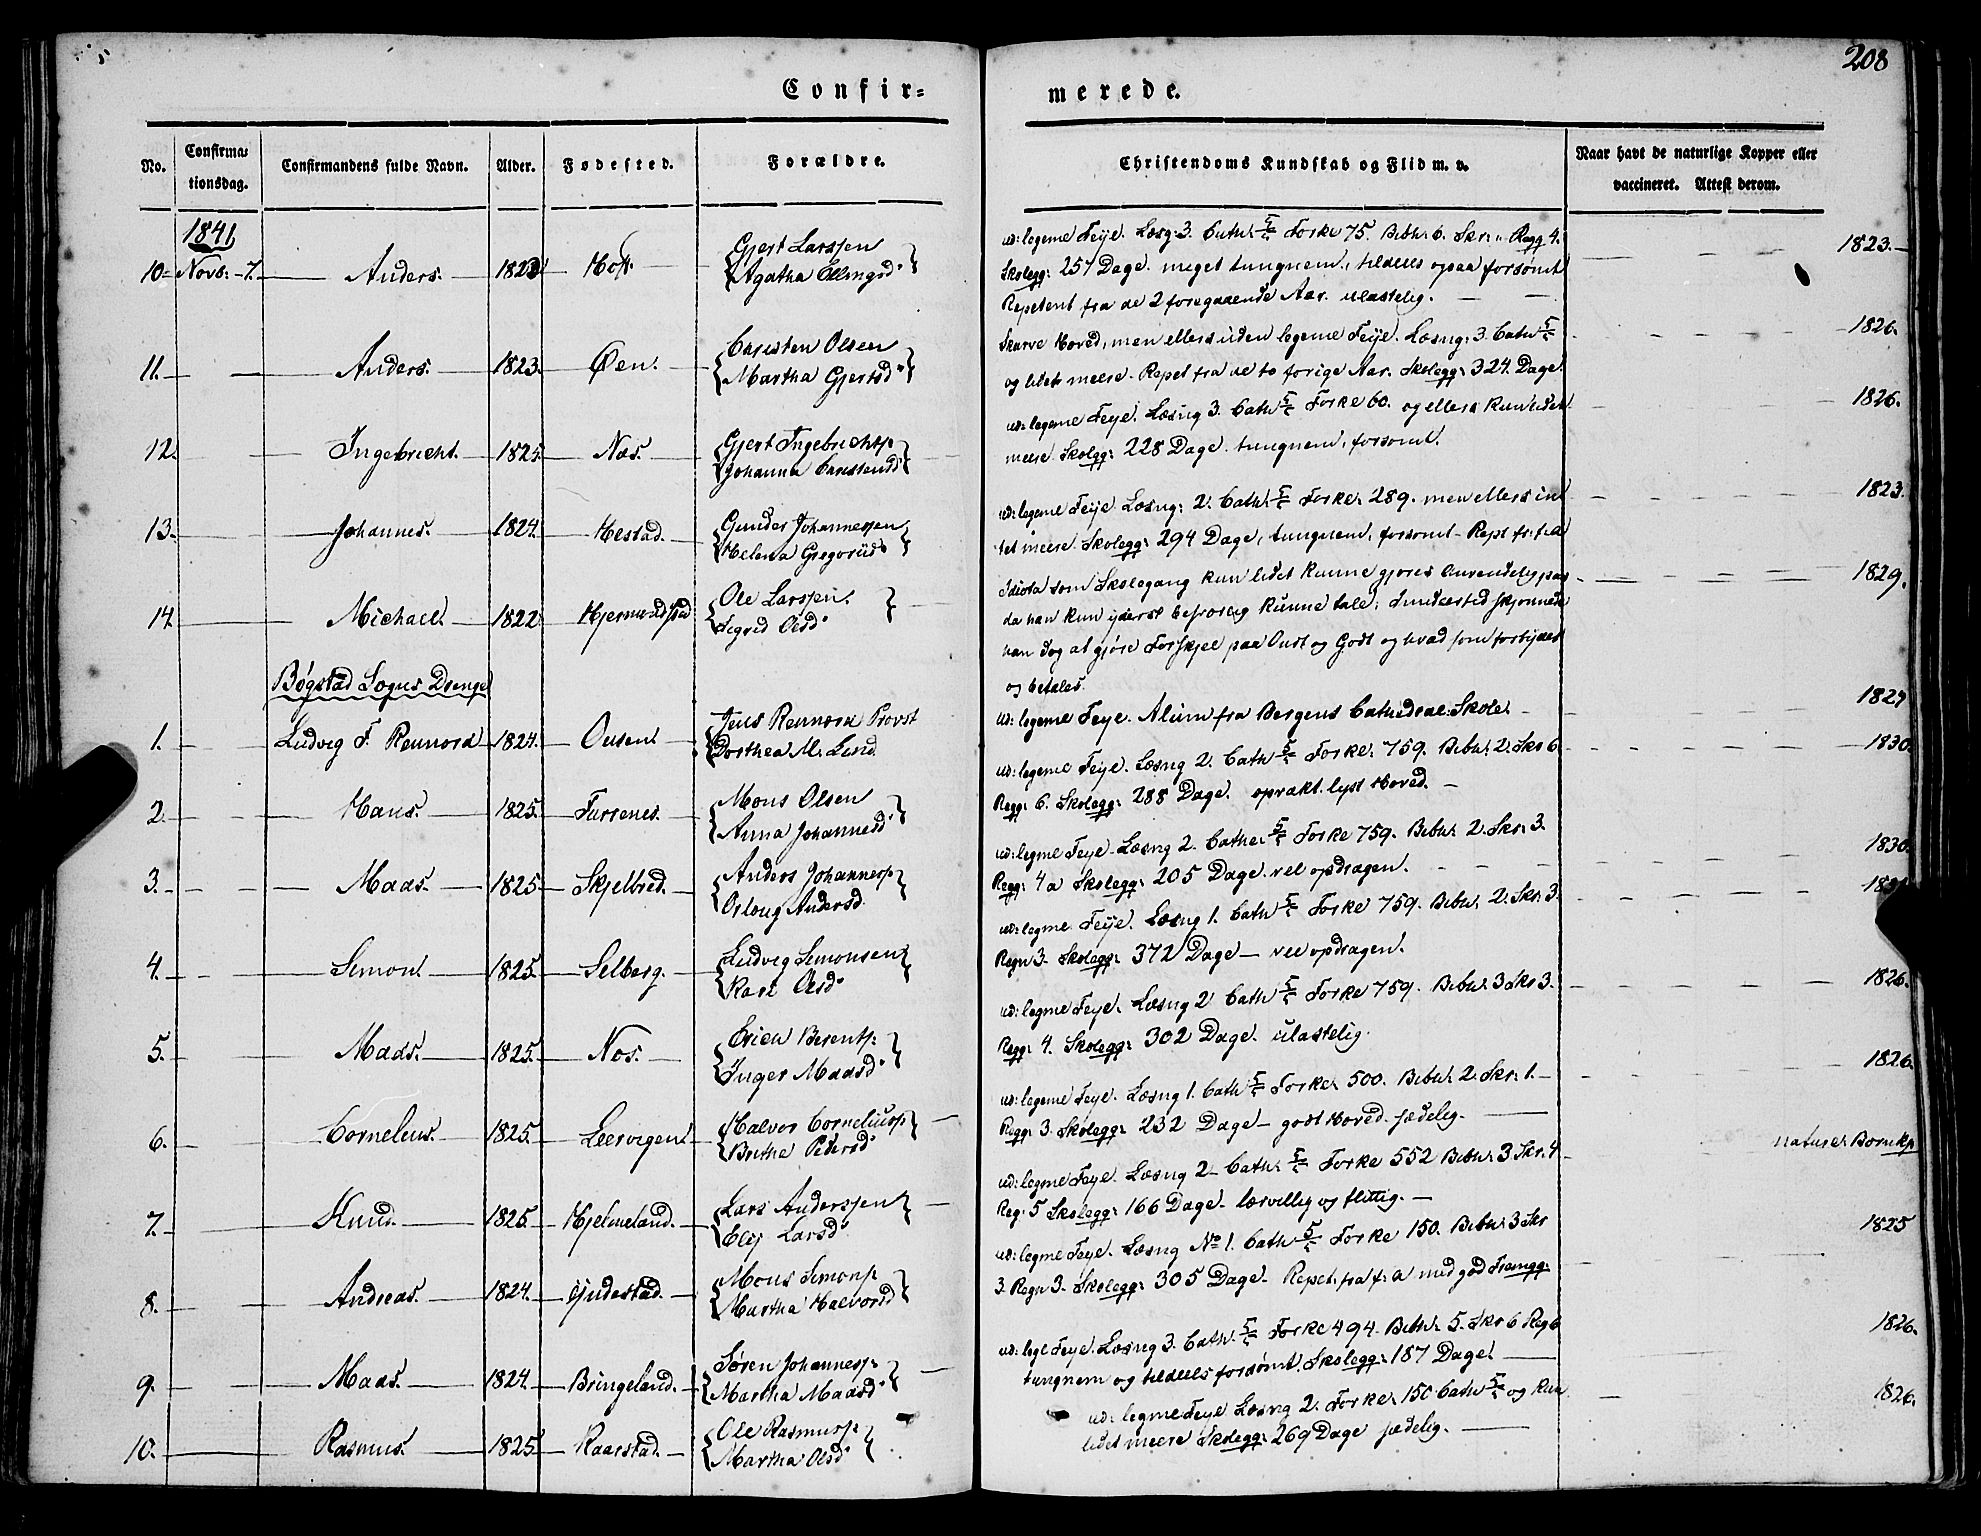 208
Confir=
merede.
No.
Confirma-
tionsdag.
Confirmandens fulde Navn.
Alder.
Fødested.
Forældre.
Christendoms Kundskab og Flid m. v.
Naar havt de naturlige Kopper eller
vaccineret. Attest derom.
1841
10 Novb: 7. Anders. 1823 Gjert Larssen
Agatha Ellingsd
ud: legeme Feije. Læsg: 3. Cath: 5/5 Forkl 75. Bibh: 6. Skr: " Regg 4.
Skolegg: 257 Dage. meget tungnem, tildeels ogsaa forsømt
Repetent fra de 2 foregaaende Aar. ulastelig.
1823
11. Anders. 1823. Øen. Carsten Olsen
Martha Gjertsd
Skurve Hoved, men ellers uden legeme Feije. Læsng: 3. Cath 5/5
og lidet meere. Repet fra de to forige Aar. Skolegg: 324 Dage
1826.
12. Ingebricht. 1825 Næs. Gjert Ingebrichts:
Johanna Carstensd
ud: legeme Feije. Læsng 3. Cath 5/5 Forkl 60. og ellers kun lidet
meere. Skolegg: 228 Dage. tungnem, forsømt.
1826.
13. Johannes. 1824. Hestad. Gunder Johannessen
Helena Gregoriid
ud: legeme Feije Læsng: 2. Cath: 5/5 Forkl: 289. men ellers in
tet meere. Skolegg: 294 Dage, tungnem, forsømt - Rept fr: f. a
1823.
14 Michael. 1822 Ole Larssen.
Sigrid Olsd
Idiota som Skolegang kun lidet kunne gjøres anvendelig paa
da han kun yderst kunne tale; skjønnede
han dog at gjøre Forskjel paa Ondt og Godt og hvad som forbydes
og betales.
1829.
Bøgstad Sogns Drenge
1. Ludvig F. Rennord 1824. Ousen Jens Rennord Provst
Dorthea M. Lind
ud: legeme Feije. Alum fra Bergens Cathedral: Skole.
1829
2. Hans. 1825. Furrenes. Mons Olsen
Anna Johannesd
ud: legeme Feije. Læsng 2. Cath 5/5 Forkl: 759. Bibh: 2. Skr 6
Regg: 6. Skolegg: 288 Dage. oprakt lyst Hoved.
1830.
3. Maas. 1825 Skjelbred. Anders Johannesp
Oslaug Andersd.
ud: legme Feije. Læsng 2. Cathe 5/5 Forkl 759. Bibh: 2. Skr: 3.
Regg: 4 a Skolegg: 205 Dage. vel opdragen.
1830.
4. Simon. 1825. Selberg. Ludvig Simonsen
Kari Olsd
ud: legme Feije. Læsng 1. Cath 5/5 Forkl 759. Bibh: 2. Skr. 3.
Regn 3. Skolegg: 372 Dage — vel opdragen.
5. Mads. 1825. Nos. Erich Berents:
Inger Maasd
ud: legme Feije. Læsng 2 Cath 5/5 Forkl 759. Bibh: 3 Skr 3.
Regg: 4. Skolegg: 302 Dage. ulastelig.
1826.
6. Cornelius. 1825. Leervigen. Halvor Corneliusp
Brithe Pedersd
ud: legeme Feije. Læsng 1. Cath 5/5 Forkl: 500. Bibh: 2. Skr: 1.
Regg: 3. Skolegg: 232 Dage — godt Hoved. sædelig.
1826.
7. Knud. 1825 Hjelmeland. Lars Anderssen
Eli Larsd
ud: legme Feije. Læsng 2 Cath: 5/5 Forkl 552 Bibh: 3 Skr: 4
Reg: 5 Skolegg: 166 Dage. lærvillig og flittig.
naturl. Børnkp
8. Andreas. 1824. Gjudestad. Mons Simons:
Martha Halvorsd
ud: legme Feije. Læsng No 1. Cath 5/5 Forkl 150. Bibh: 3 Skr
3. Regn 3. Skolegg: 305 Dage. Repet: fra f: a med god Fremgg:
1825
9. Maas. 1824. Bringeland. Søren Johannesp:
Martha Maasd
ud: legl Feije. Læsng 3. Cath. 5/5 Forkl 494. Bibh: 5. Skr 6 Reg 6
tungnem og tildeels forsømt. Skolegg: 187 Dage.
1826.
10. Rasmus. 1825. Kaarstad. Ole Rasmusp:
Martha Olsd
ud: legme Feije Læsng 2. Forkl: 150 Cath 5/5 og kun
lidet meere Skolegg: 269 Dage sædelig.
1826.